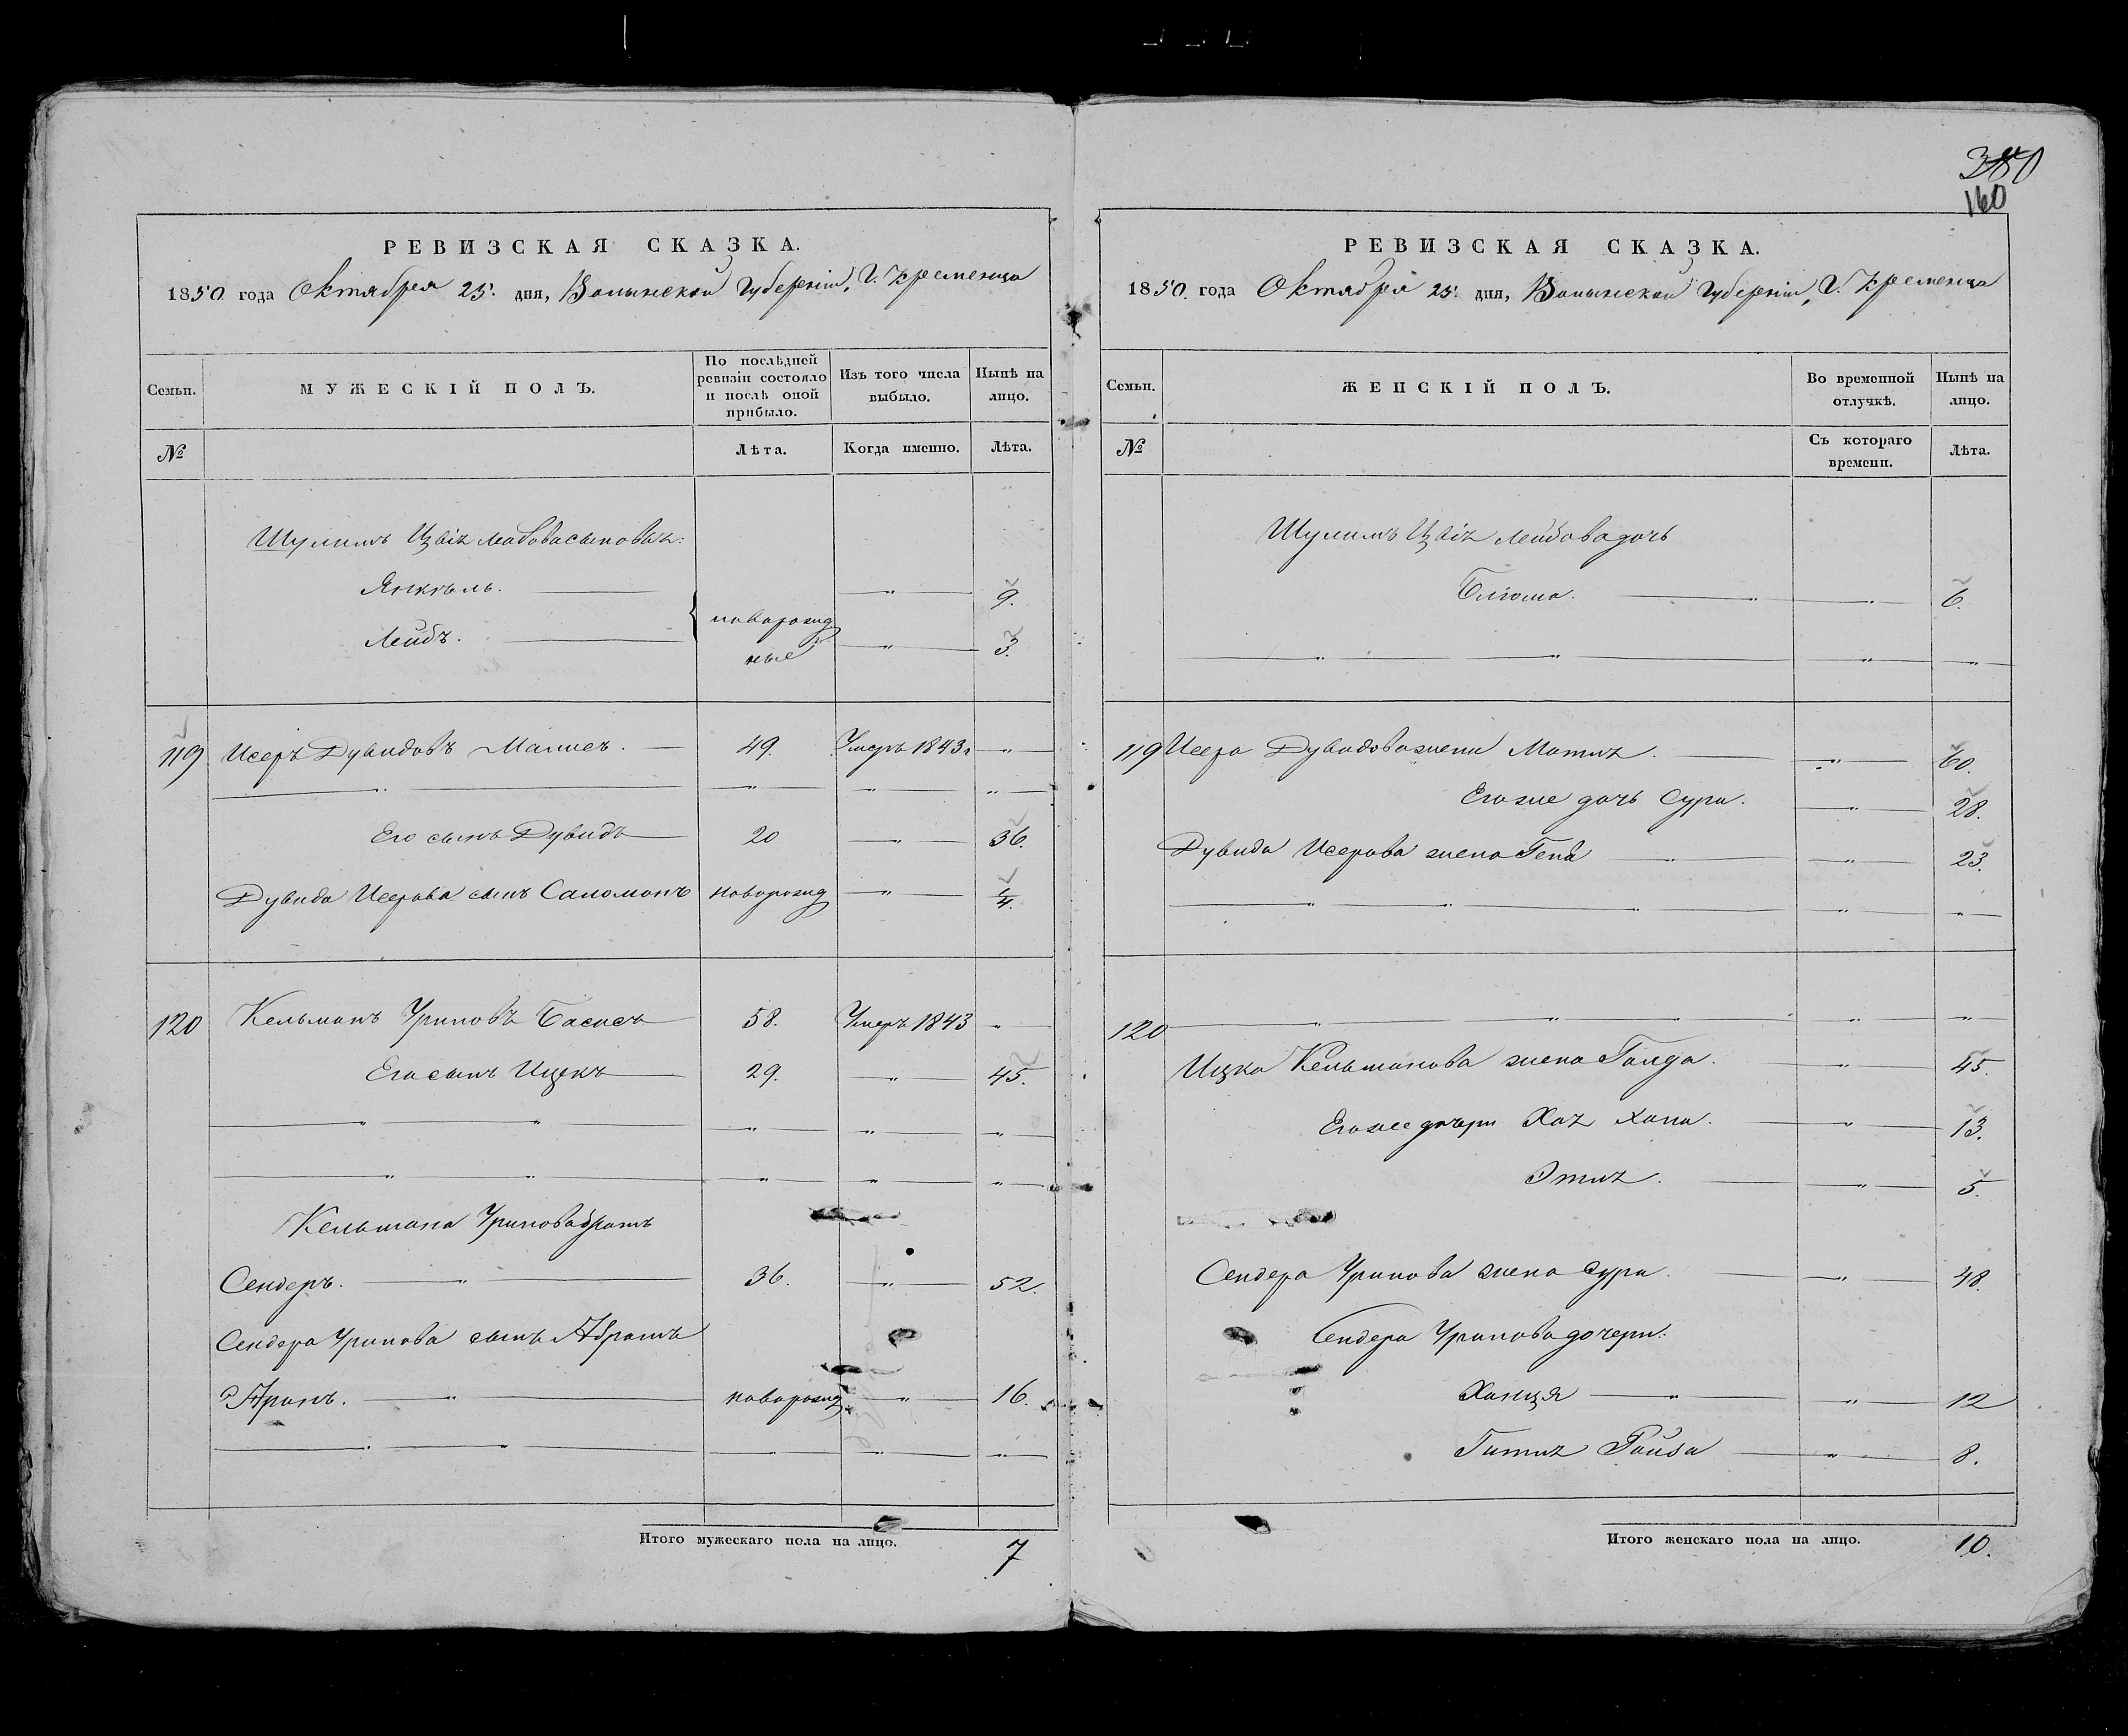 380
160
РЕВИЗСКАЯ СКАЗКА.
1850 года Октября 25. дня, Волынской Губерніи, Г. Кременца
Семьи.
МУЖЕСКІЙ ПОЛЪ.
По послѣдней ревизіи состояло и послѣ оной прибыло.
Изъ того числа выбыло.
Нынѣ на лицо.
№
Лѣта.
Когда именно.
Лѣта.
Шулимъ Цвіх Лейбова сыновья:
Янкель. — " — 9.
Лейбъ. — новорожд ные — " — 3.
119 Исеръ Дувидовъ — 49. Умеръ 1843 — " —
— " — " — " — " —
Его сынъ Дувидъ — 20 — " — 36.
Дувида Исерова сынъ Саломонъ новорожд — " — 1/4.
120 Кельманъ Уриновъ Басисъ 58. Умеръ 1843 — " —
Его сынъ Ицекъ — 29. — " — 45.
— " — " — " — " — " —
— " — " — " — " — " —
Кельмана Уринова братъ
Сендеръ. — " — 36. — " — 52.
Сендера Уринова сынъ Абрамъ
Аронъ. — " — новорожд — " — 16.
— " — " — " — " — " —
Итого мужескаго пола на лицо. 7
РЕВИЗСКАЯ СКАЗКА.
1850. года Октября 25. дня, Волынской Губерніи, Г. Кременца
Семьи.
ЖЕНСКІЙ ПОЛЪ.
Во временной отлучкѣ.
Нынѣ на лицо.
№
Съ котораго времени.
Лѣта.
Шулимъ Цвіх Лейбова дочь
Блюма. — " — " — 6.
— " — " — " — " —
119 Исера Дувидова жена — " — 60.
Его же дочь Сура. — " — 28.
Дувида Исерова жена Геня — " — " — 23.
— " — " — " — " — " —
120 — " — " — " — " — " —
Ицка Кельманова жена Голда. — " — 45.
Его же дочери Хая Хана. — " — 13.
— " — 5.
Сендера Уринова жена Сура. — " — 48.
Сендера Уринова дочери:
Ханця — " — " — 12
Ройза — " — 8.
Итого женскаго пола на лицо. 10.